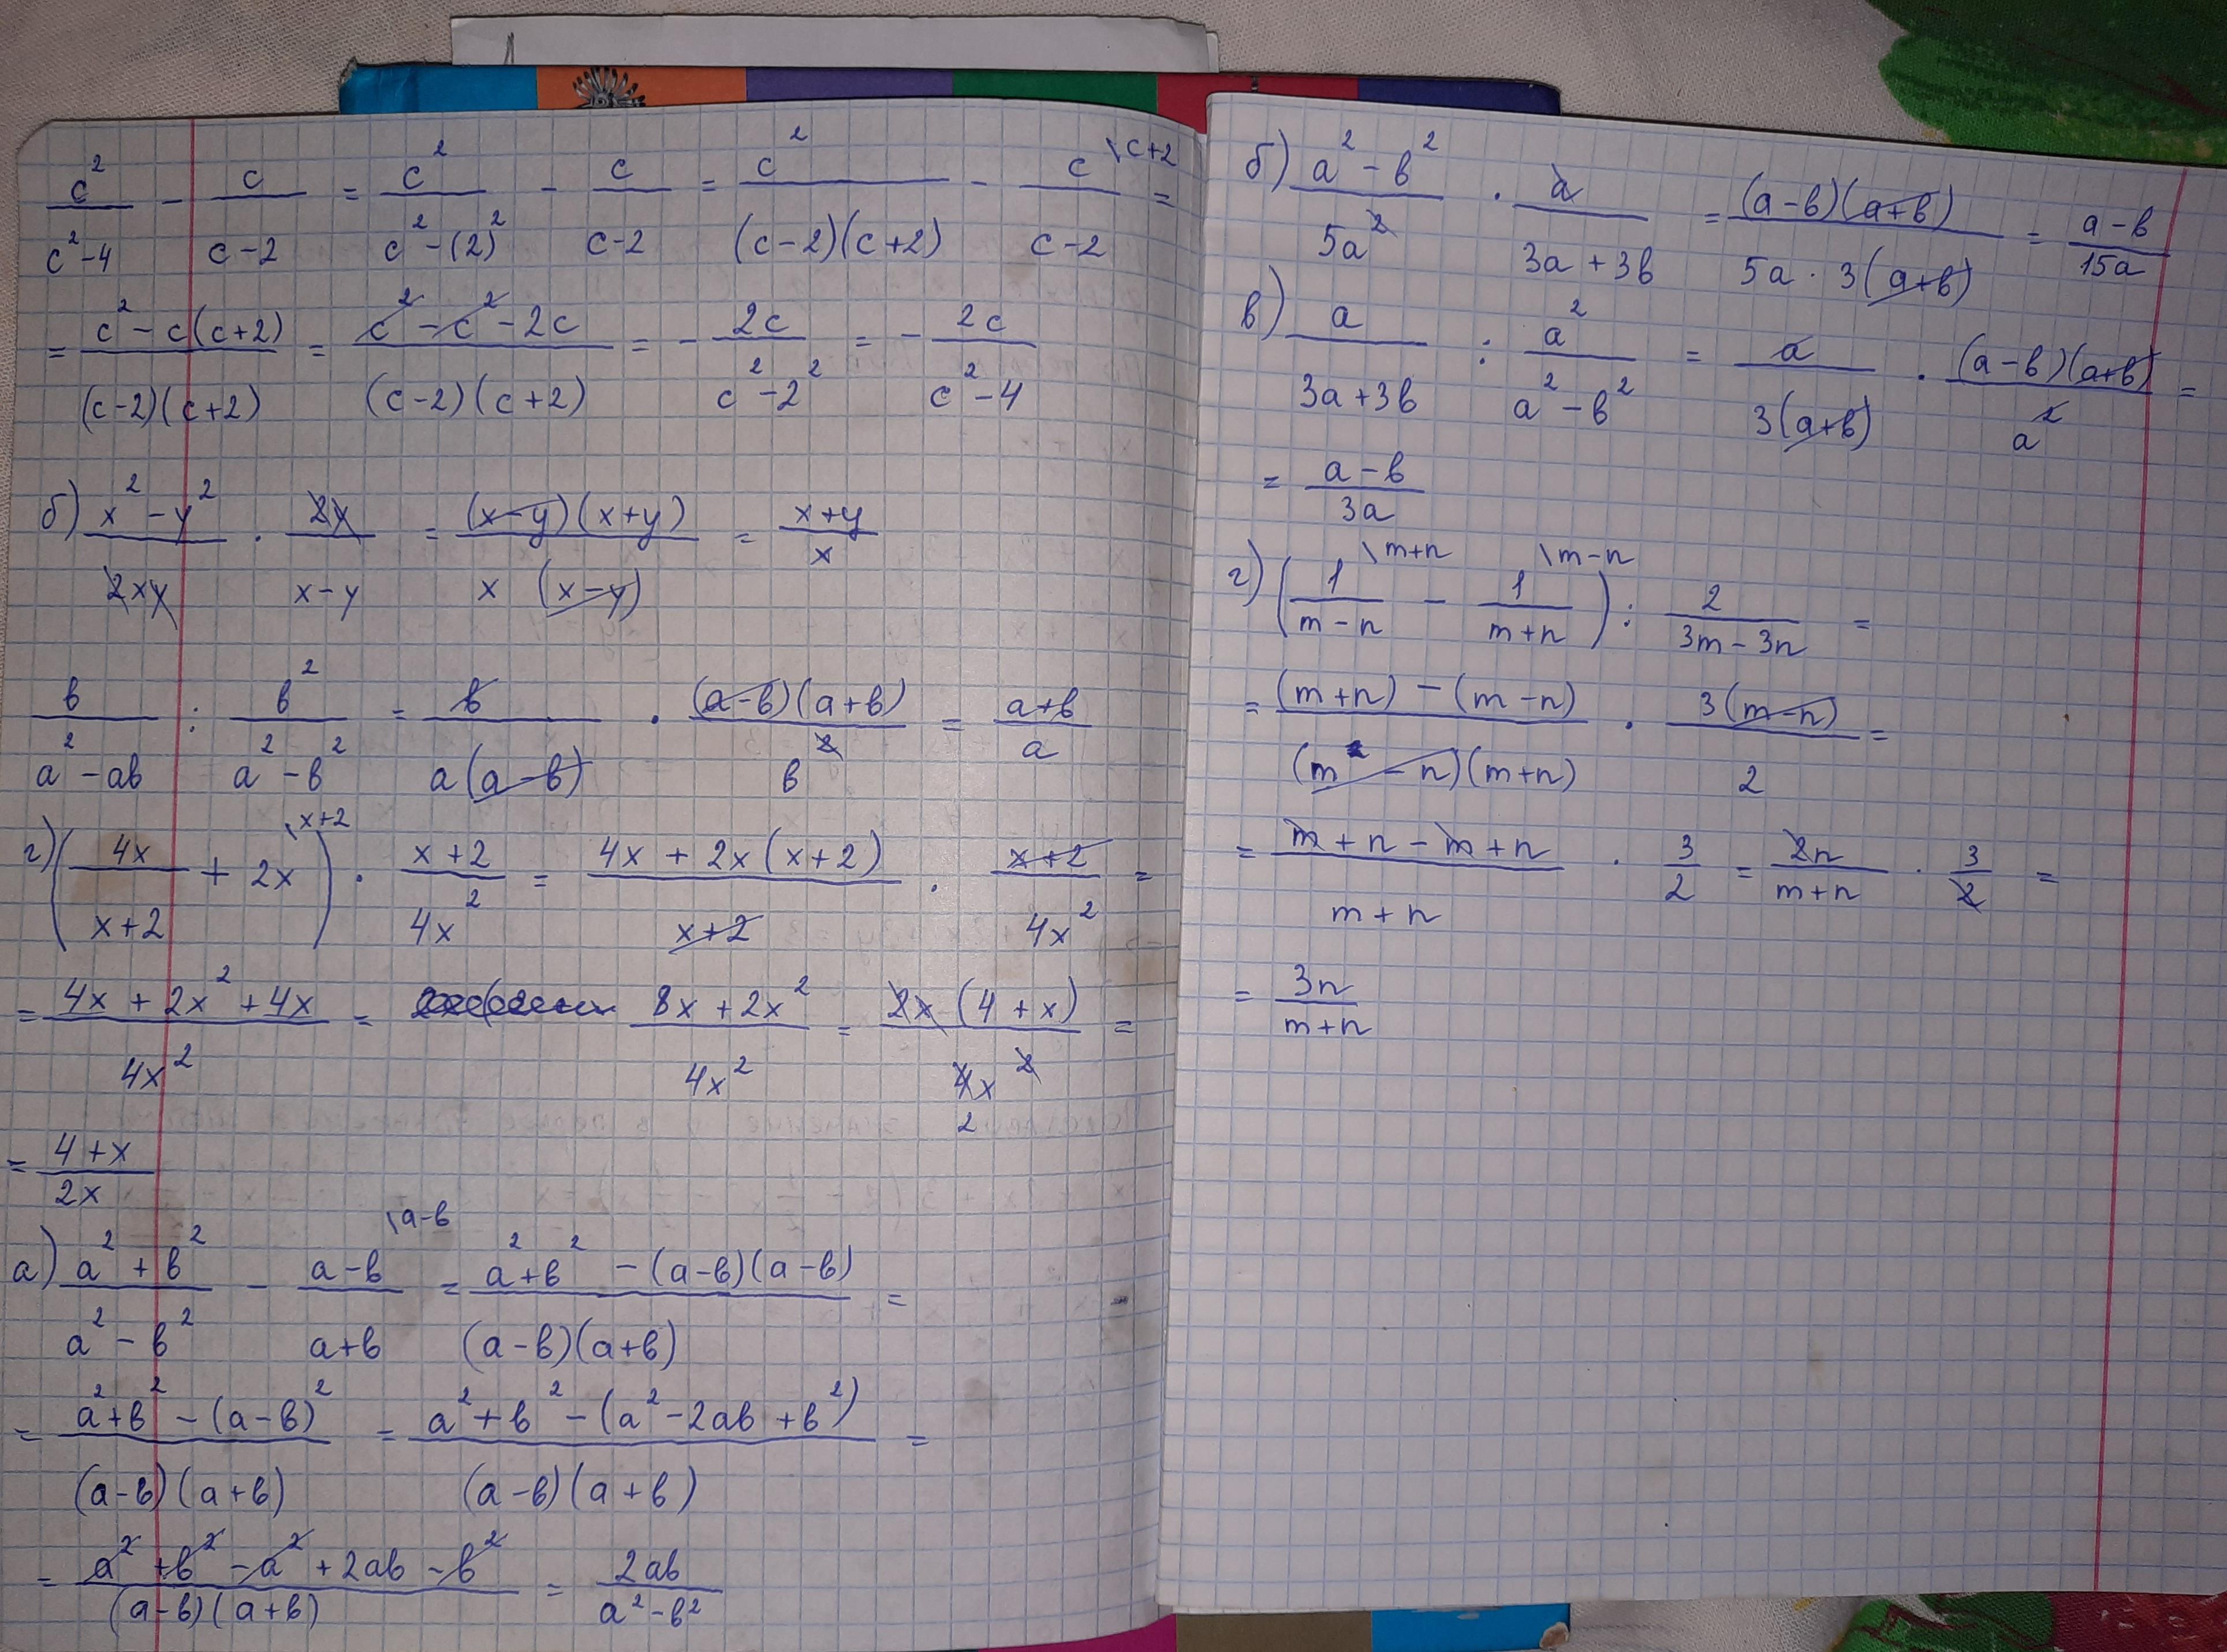 c²/(c²-4) - c/(c-2) = c²/(c²-(2)²) - c/(c-2) = c²/((c-2)(c+2)) - c\c+2/(c-2) =
= (c²-c(c+2))/((c-2)(c+2)) = (c²-c²-2c)/((c-2)(c+2)) = - 2c/(c²-2²) = - 2c/(c²-4)
б) (x²-y²)/(2xy) · 2y/(x-y) = ((x-y)(x+y))/(x (x-y)) = (x+y)/x
в/(a²-aв) : в²/(a²-в²) = в/(a(a-в)) · ((a-в)(a+в))/в² = (a+в)/a
г) (4x/(x+2) + 2x\x+2) · (x+2)/(4x²) = (4x+2x(x+2))/(x+2) · (x+2)/(4x²) =
= (4x+2x²+4x)/(4x²) = (8x+2x²)/(4x²) = (2x (4+x))/(4x²) 2 =
= (4+x)/(2x)
а) (a²+в²)/(a²-в²) - (a-в)\a-в/(a+в) = (a²+в² -(a-в)(a-в))/((a-в)(a+в)) =
= (a²+в²-(a-в)²)/((a-в)(a+в)) = (a²+в²-(a²-2aв+в²))/((a-в)(a+в)) =
= (a²+в²-a²+2aв-в²)/((a-в)(a+в)) = 2aв/(a²-в²)
б) (a²-в²)/(5a²) · a/(3a+3в) = ((a-в)(a+в))/(5a·3(a+в)) = (a-в)/(15a)
в) a/(3a+3в) : a²/(a²-в²) = a/(3(a+в)) · ((a-в)(a+в))/a² =
= (a-в)/(3a)
г) (1\m+n/(m-n) - 1\m-n/(m+n)) : 2/(3m-3n) =
= ((m+n)-(m-n))/((m-n)(m+n)) · 3(m-n)/2 =
= (m+n-m+n)/(m+n) · 3/2 = 2n/(m+n) · 3/2 =
= 3n/(m+n)